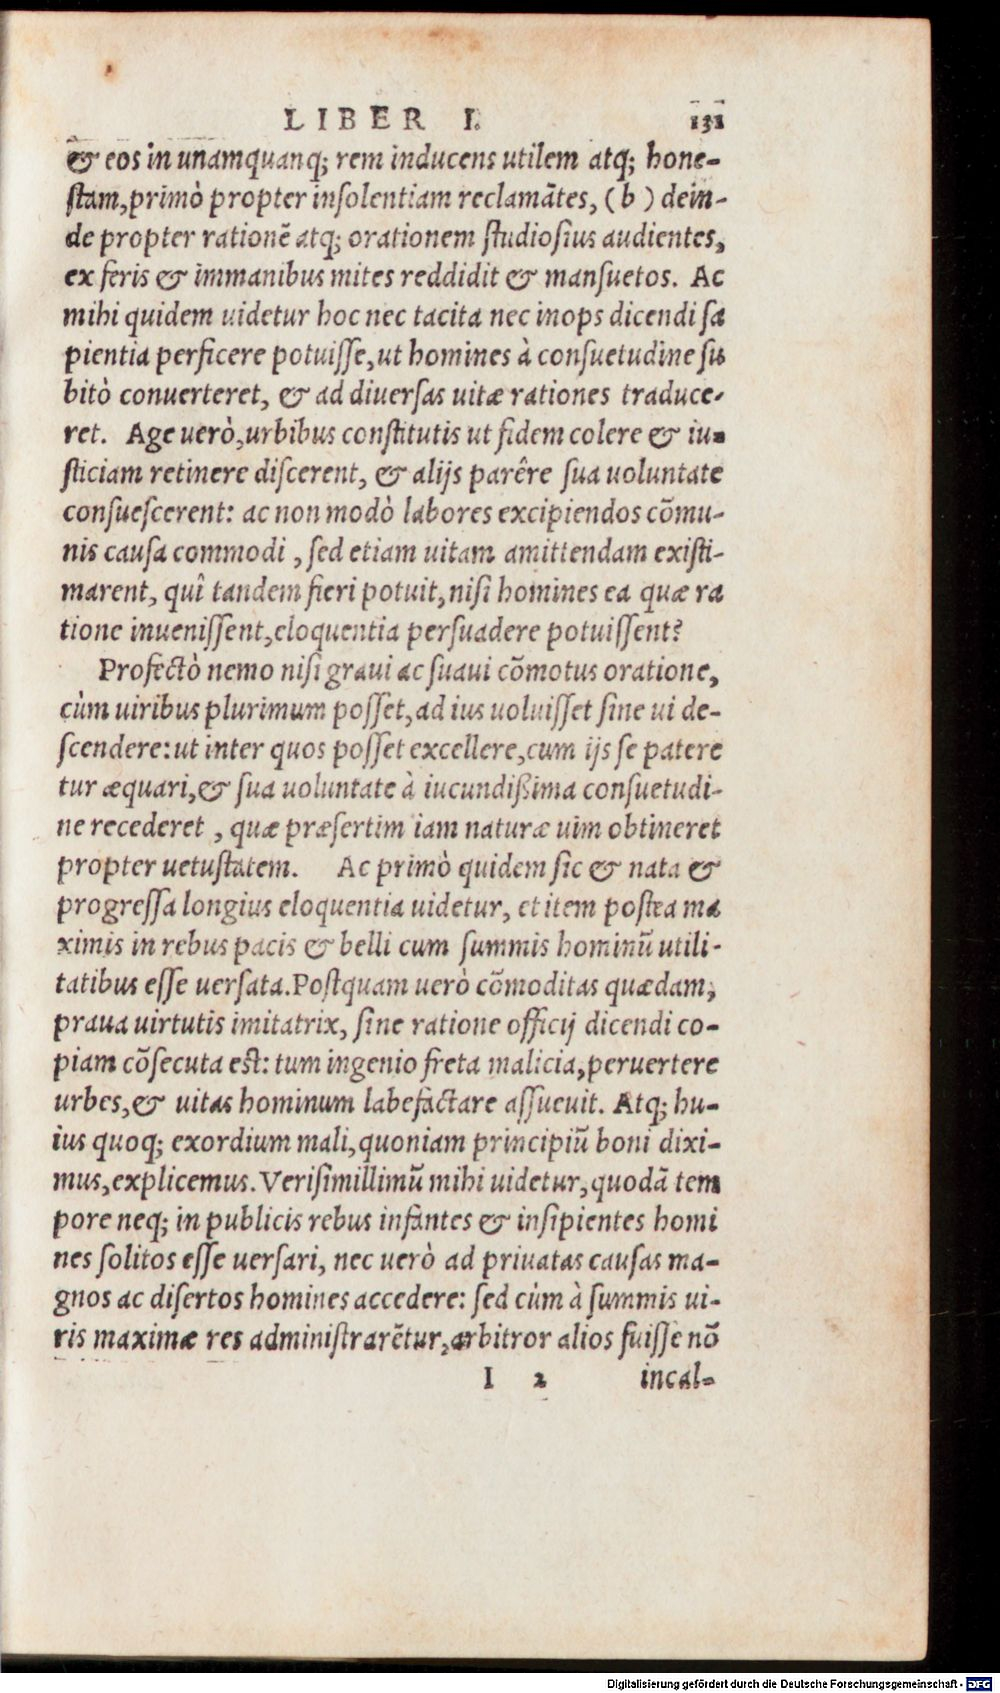 LIBER I. 131
& eos in unamquanq; rem inducens utilem atq; hone-
stam, primò propter insolentiam reclamãtes, (b) dein-
de propter rationẽ atq; orationem studiosius audientes,
ex feris & immanibus mites reddidit & mansuetos. Ac
mihi quidem uidetur hoc nec tacita nec inops dicendi sa
pientia perficere potuisse, ut homines à consuetudine su
bitò conuerteret, & ad diuersas uitæ rationes traduce-
ret. Age uerò, urbibus constitutis ut fidem colere & iu-
sticiam retinere discerent, & alijs parêre sua uoluntate
consuescerent: ac non modò labores excipiendos cõmu-
nis causa commodi, sed etiam uitam amittendam existi-
marent, quî tandem fieri potuit, nisi homines ea quæ ra
tione inuenissent, eloquentia persuadere potuissent?
Profectò nemo nisi graui ac suaui cõmotus oratione,
cùm uiribus plurimum posset, ad ius uoluisset sine ui de-
scendere: ut inter quos posset excellere, cum ijs se patere
tur æquari, & sua uoluntate à iucundißima consuetudi-
ne recederet, quæ præsertim iam naturæ uim obtineret
propter uetustatem. Ac primò quidem sic & nata &
progressa longius eloquentia uidetur, et item postea ma
ximis in rebus pacis & belli cum summis hominũ utili-
tatibus esse uersata. Postquam uerò cõmoditas quædam,
praua uirtutis imitatrix, sine ratione officij dicendi co-
piam cõsecuta est: tum ingenio freta malicia, peruertere
urbes, & uitas hominum labefactare assueuit. Atq; hu-
ius quoq; exordium mali, quoniam principiũ boni dixi-
mus, explicemus. Verisimillimũ mihi uidetur, quodã tem
pore neq; in publicis rebus infantes & insipientes homi
nes solitos esse uersari, nec uerò ad priuatas causas ma-
gnos ac disertos homines accedere: sed cùm à summis ui-
ris maximæ res administrarẽtur, arbitror alios fuisse nõ
I 2 incal-
Digitalisierung gefördert durch die Deutsche Forschungsgemeinschaft - DFG